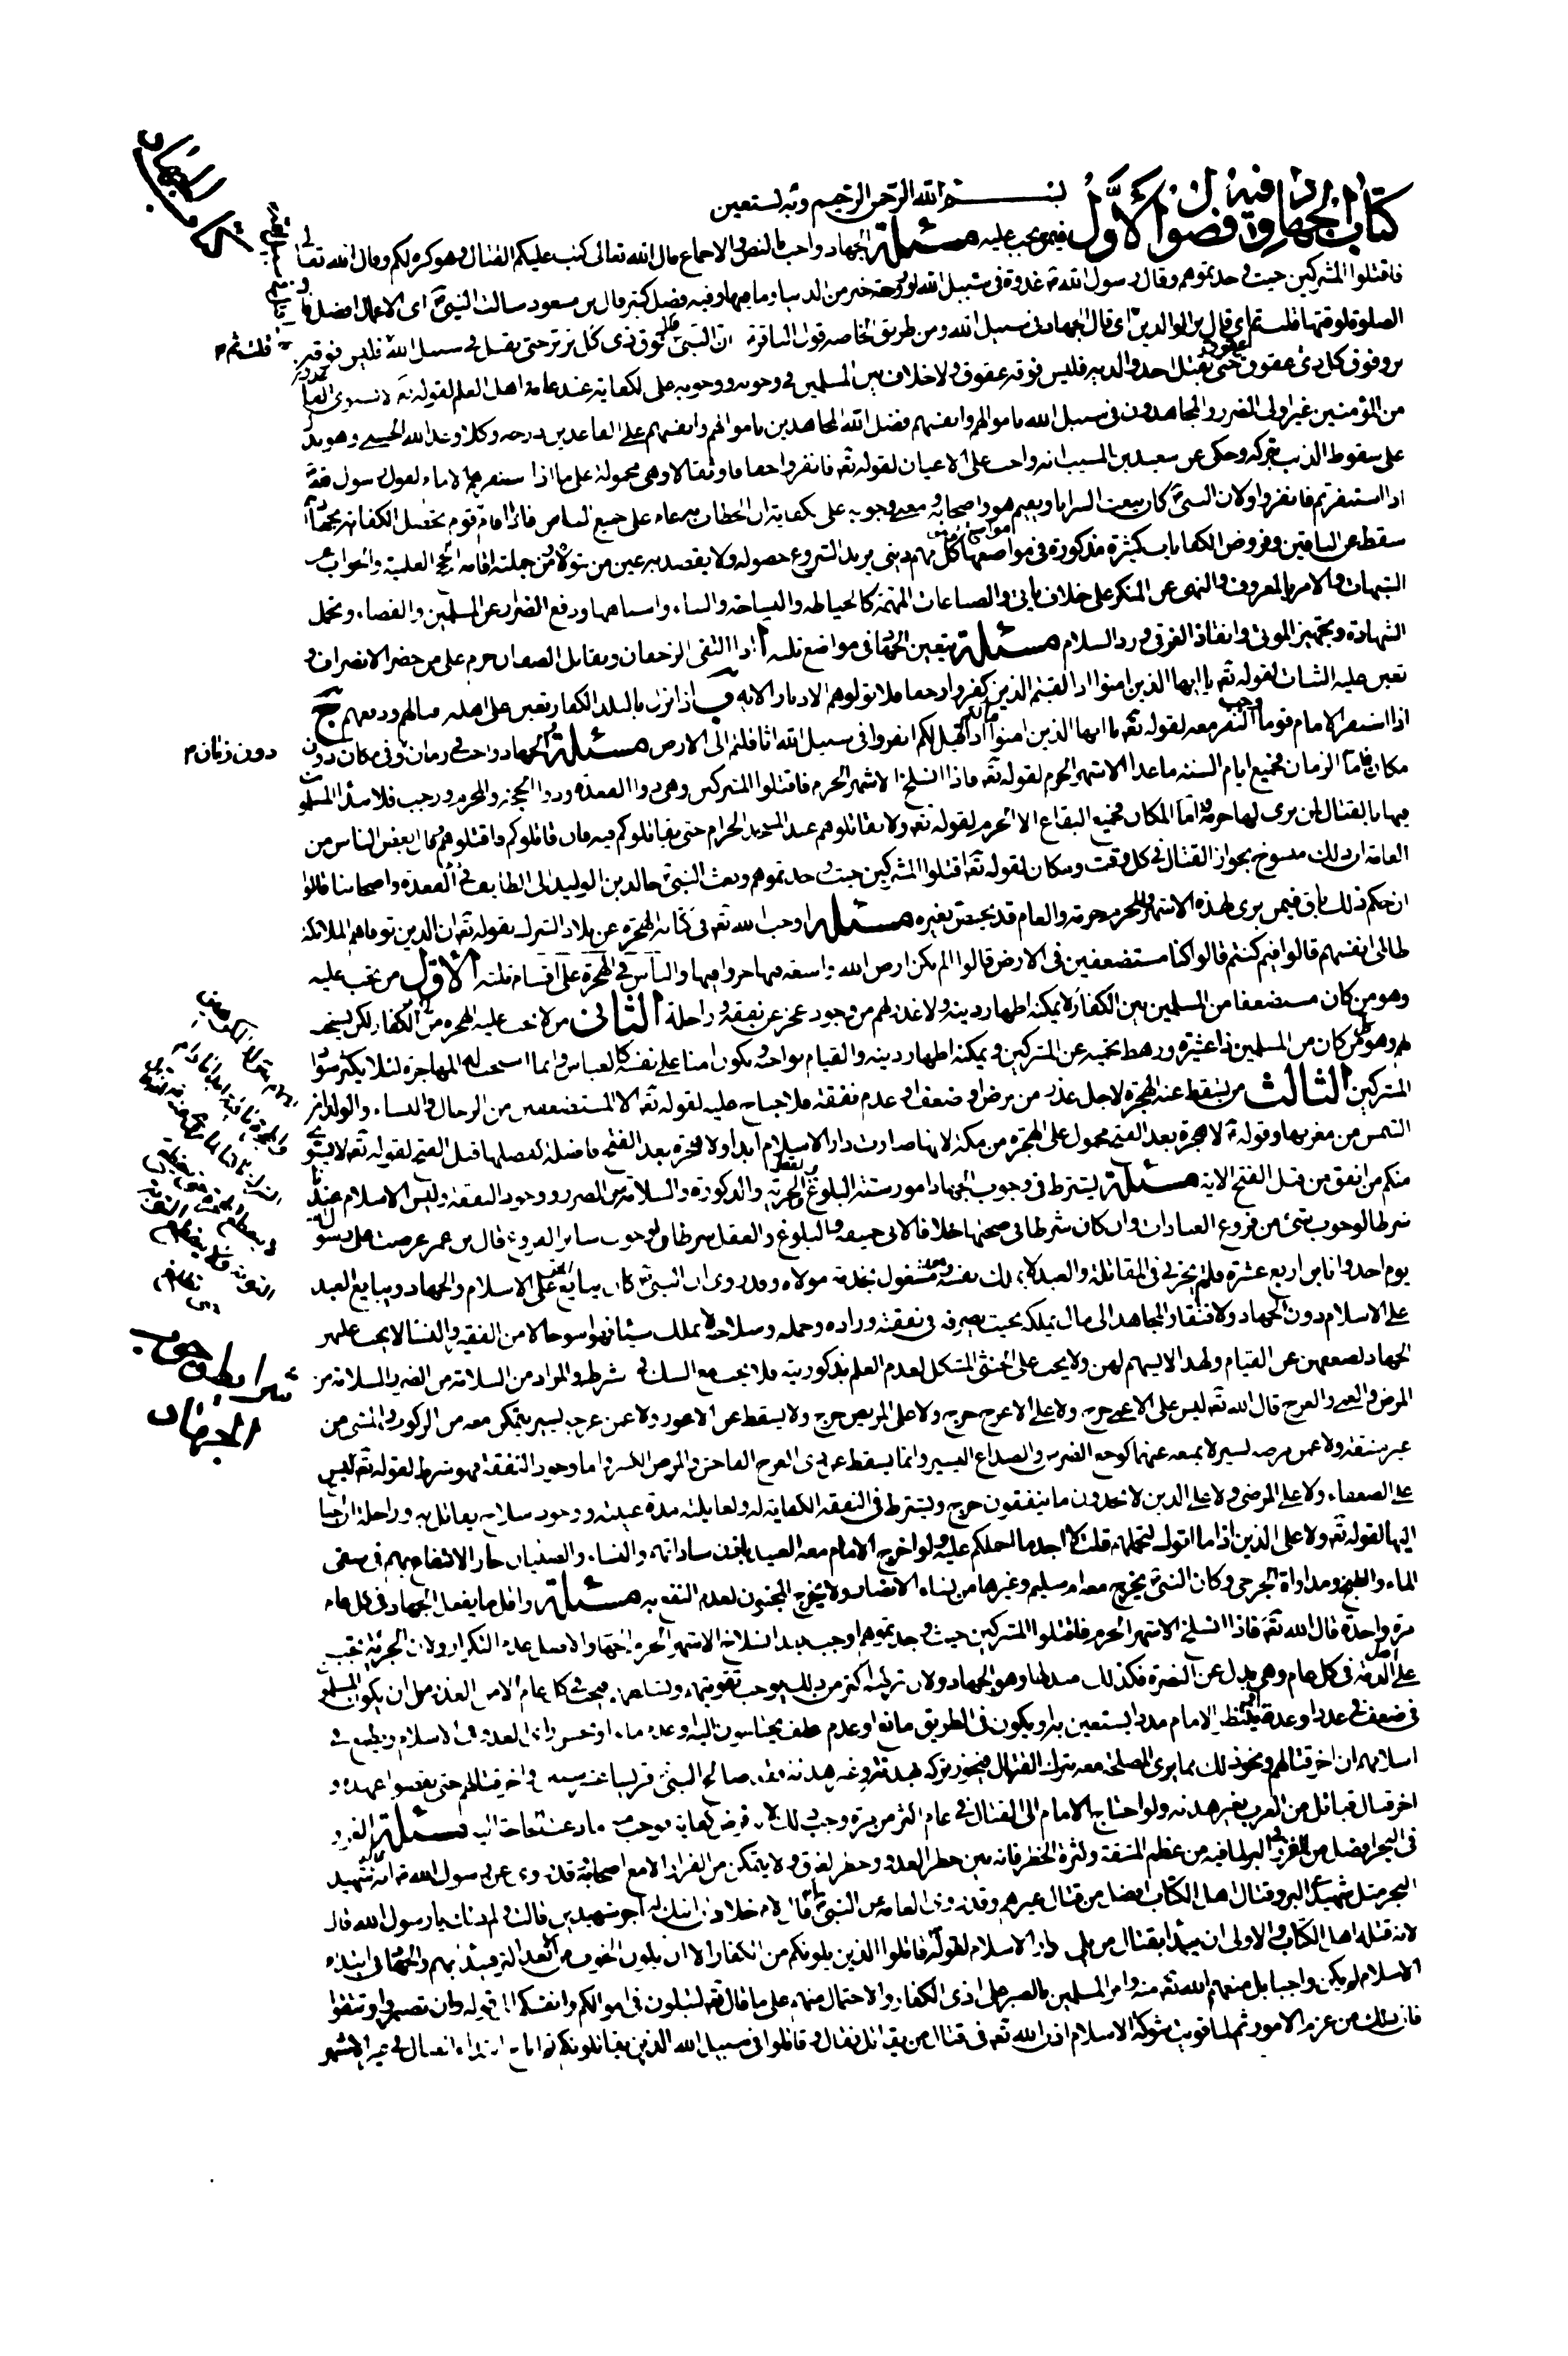 بسم الله الرحمن الرحيم وبه نستعين
كتاب الجهاد وفيه فصول الأول فيمن يجب عليه مسئلة الجهاد واجب بالنص والاجماع قال الله تعالى كتب عليكم القتال وهو كره لكم وقال الله تعالى
فاقتلوا المشركين حيث وجدتموهم وقال رسول الله ص غدوة في سبيل الله او روحة خير من الدنيا وما فيها وفيه فضل كثير قال بن مسعود سالت النبي ص اى الاعمال افضل قال
الصلوة لوقتها قلت ثم اى قال بر الوالدين قلت ثم اى قال الجهاد في سبيل الله ومن طريق الخاصة قول الباقر ع ان النبي ص قال فوق كل ذى بر بر حتى يقتل في سبيل الله فليس فوقه
بر وفوق كل ذى عقوق عقوق حتى يقتل احد والديه فليس فوقه عقوق ولا خلاف بين المسلمين في وجوبه ووجوبه على الكفاية عند عامة اهل العلم لقوله تع لا يستوى القاعدون
من المؤمنين غير اولى الضرر والمجاهدون في سبيل الله باموالهم وانفسهم فضل الله المجاهدين باموالهم وانفسهم على القاعدين درجة وكلا وعد الله الحسنى وهو يدل
على سقوط الذنب بتركه وحكى عن سعيد بن المسيب انه واجب على الاعيان لقوله تع انفروا خفافا وثقالا وهى محمولة على ما اذا استنفرهم الامام لقول رسول الله ص
اذا استنفرتم فانفروا ولان النبي ص كان يبعث السرايا ويقيم هو واصحابه ومعنى وجوبه على الكفاية ان الخطاب به عام على جميع الناس فاذا قام به قوم تحصل الكفاية بجهادهم
سقط عن الباقين وفروض الكفايات كثيرة مذكورة في مواضعها وهو كل مهم دينى يريد الشرع حصوله ولا يقصد به عين من يتولاه ومن جملته اقامة الحجج العلمية والجواب عن
الشبهات والامر بالمعروف والنهى عن المنكر على خلاف ياتى والصناعات المهمة كالخياطة والنساجة والبناء واشباهها ودفع الضرر عن المسلمين والقضاء وتحمل
الشهادة وتجهيز الموتى وانقاذ الغرقى ورد السلام مسئلة يتعين الجهاد في مواضع ثلثة ا اذا التقى الزحفان وتقابل الصفان حرم على من حضر الانصراف و
تعين عليه الثبات لقوله تع يا ايها الذين امنوا اذا لقيتم الذين كفروا زحفا فلا تولوهم الادبار الاية ب اذا نزل بالبلد الكفار تعين على اهله قتالهم ودفعهم ج
اذا استنفر الامام قوما وجب النفر معه لقوله تع يا ايها الذين امنوا ما لكم اذا قيل لكم انفروا في سبيل الله اثاقلتم الى الارض مسئلة الجهاد واجب في زمان وفي مكان دون
مكان فاما الزمان فجميع ايام السنة ما عدا الاشهر الحرم لقوله تع فاذا انسلخ الاشهر الحرم فاقتلوا المشركين وهى ذوا القعدة وذوا الحجة والمحرم ورجب فلا يبدأ المسلمون
فيها بالقتال لمن يرى لها حرمة واما المكان فجميع البقاع الا الحرم لقوله تع ولا تقاتلوهم عند المسجد الحرام حتى يقاتلوكم فيه فان قاتلوكم فاقتلوهم وقال بعض الناس من
العامة ان ذلك منسوخ بجواز القتال في كل وقت ومكان لقوله تع اقتلوا المشركين حيث وجدتموهم وبعث النبي ص خالد بن الوليد الى الطايف في ذى القعدة واصحابنا قالوا
ان حكم ذلك باق فيمن يرى لهذه الاشهر وللحرم حرمة والعام قد يخص بغيره مسئلة اوجب الله تع في كتابه الهجرة عن بلاد الشرك بقوله تع ان الذين توفاهم الملائكة
ظالمى انفسهم قالوا فيم كنتم قالوا كنا مستضعفين في الارض قالوا الم تكن ارض الله واسعة فتهاجروا فيها والناس في الهجرة على اقسام ثلثة الأول من تجب عليه
وهو من كان مستضعفا من المسلمين بين الكفار لا يمكنه اظهار دينه ولا عذر لهم من وجود عجز عن نفقة وراحلة الثانى من لا تجب عليه الهجرة من الكفار لكن يستحب
لهم وهو كل من كان من المسلمين ذا عشيرة ورهط تحميه عن المشركين ويمكنه اظهار دينه والقيام بواجبه ويكون امنا على نفسه كالعباس وانما استحب له المهاجرة لئلا يكثر سواد
المشركين الثالث من تسقط عنه الهجرة لاجل عذر من مرض او ضعف او عدم نفقة فلا جناح عليه لقوله تع الا المستضعفين من الرجال والنساء والولدان
الشمس من مغربها وقوله ص لا هجرة بعد الفتح محمول على الهجرة من مكة لانها صارت دار الاسلام ابدا او لا هجرة بعد الفتح فاضلة كفضلها قبل الفتح لقوله تع لا يستوى
منكم من انفق من قبل الفتح الاية مسئلة يشترط في وجوب الجهاد امور ستة البلوغ والعقل والحرية والذكورة والسلامة من الضرر ووجود النفقة وليس الاسلام عندنا
شرطا لوجوب شئ من فروع العبادات وان كان شرطا في صحتها خلافا لابى حنيفة والبلوغ والعقل شرطان لوجوب سائر الفروع قال بن عمر عرضت على رسول الله
يوم احد وانا بن اربع عشرة فلم يجزنى في المقاتلة والعبد لا يملك نفسه وهو مشغول بخدمة مولاه وقد روى ان النبي ص كان يبايع الحر على الاسلام والجهاد ويبايع العبد
على الاسلام دون الجهاد ولافتقار المجاهد الى مال يملكه بحيث يصرفه في نفقته وزاده وحمله وسلاحه ولا يملك شيئا فهو اسوء حالا من الفقير والنساء لا يجب عليهن
الجهاد لضعفهن عن القيام ولهذا لا يسهم لهن ولا يجب على الخنثى المشكل لعدم العلم بذكوريته فلا يجب مع الشك في شرطه والمراد من السلامة من الضرر السلامة من
المرض والعمى والعرج قال الله تع ليس على الاعمى حرج ولا على الاعرج حرج ولا على المريض حرج ولا يسقط عن الاعور ولا عمن عرج يسير يتمكن معه من الركوب والمشى من
غير مشقة ولا عمن مرضه يسير لا يمنعه عنهما كوجع الضرس والصداع اليسير وانما يسقط عن ذى العرج الفاحش والمرض الكثير واما وجود النفقة فهو شرط لقوله تع ليس
على الضعفاء ولا على المرضى ولا على الذين لا يجدون ما ينفقون حرج ويشترط في النفقة الكفاية له ولعايلته مدة غيبته ووجود سلاح يقاتل به وراحلة ان احتاج
اليها لقوله تع ولا على الذين اذا ما اتوك لتحملهم قلت لا اجد ما احملكم عليه ولو اخرج الامام معه العبيد باذن ساداتهم والنساء والصبيان جاز الانتفاع بهم في سقى
الماء والطبخ ومداواة الجرحى وكان النبي ص يخرج معه ام سليم وغيرها من نساء الانصار ولا يخرج المجنون لعدم النفع به مسئلة واقل ما يفعل الجهاد في كل عام
مرة واحدة قال الله تع فاذا انسلخ الاشهر الحرم فاقتلوا المشركين حيث وجدتموهم اوجب بعد انسلاخ الاشهر الحرم الجهاد والاصل عدم التكرار ولان الجزية تجب
على اهل الذمة في كل عام وهى بدل عن النصرة فكذلك مبدلها وهو الجهاد ولان تركه اكثر من ذلك يوجب تقويتهم وتسلطهم فيجب في كل عام الا مع العذر مثل ان يكون بالمسلمين
في ضعف في عدد او عدة او ينتظر الامام مددا يستعين به او يكون في الطريق مانع او عدم علف يحتاجون اليه او عدم ماء او تحسن راى العدو في الاسلام ويطمع في
اسلامهم ان اخر قتالهم ونحو ذلك مما يرى المصلحة معه بترك القتال فيجوز تركه بهدنة وغير هدنة فقد صالح النبي ص قريشا عشر سنين واخر قتالهم حتى نقضوا عهده و
اخر قتال قبائل من العرب بغير هدنة ولو احتاج الامام الى القتال في عام اكثر من مرة وجب ذلك لانه فرض كفاية فوجب منه ما دعت الحاجة اليه مسئلة الغزو
في البحر افضل من الغزو في البر لما فيه من عظم المشقة وكثرة الخطر فانه بين خطر العدو وخطر الغرق ولا يتمكن من الفرار الا مع اصحابه فقد روى عن رسول الله ص انه شهيد
البحر مثل شهيدى البر وقتال اهل الكتاب افضل من قتال غيرهم وقد روى العامة عن النبي ص انه قال لام خلاد ان ابنك له اجر شهيدين قالت ولم ذاك يا رسول الله قال
لانه قتله اهل الكتاب والاولى ان يبدأ بقتال من يلى دار الاسلام لقوله تع قاتلوا الذين يلونكم من الكفار الا ان يكون الخوف من الابعد اكثر فيبدأ بهم والجهاد في ابتداء
الاسلام لم يكن واجبا بل منعهم الله تع منه وامر المسلمين بالصبر على اذى الكفار والاحتمال منهم على ما قال تع لتبلون في اموالكم وانفسكم الى قوله وان تصبروا وتتقوا
فان ذلك من عزم الامور ثم لما قويت شوكة الاسلام اذن الله تع في قتال من يقاتل فقال وقاتلوا في سبيل الله الذين يقاتلونكم ثم اباح ابتداء القتال في غير الاشهر
كتاب الجهاد
قلت ثم
دون زمان
شرايط وجوب
الجهاد